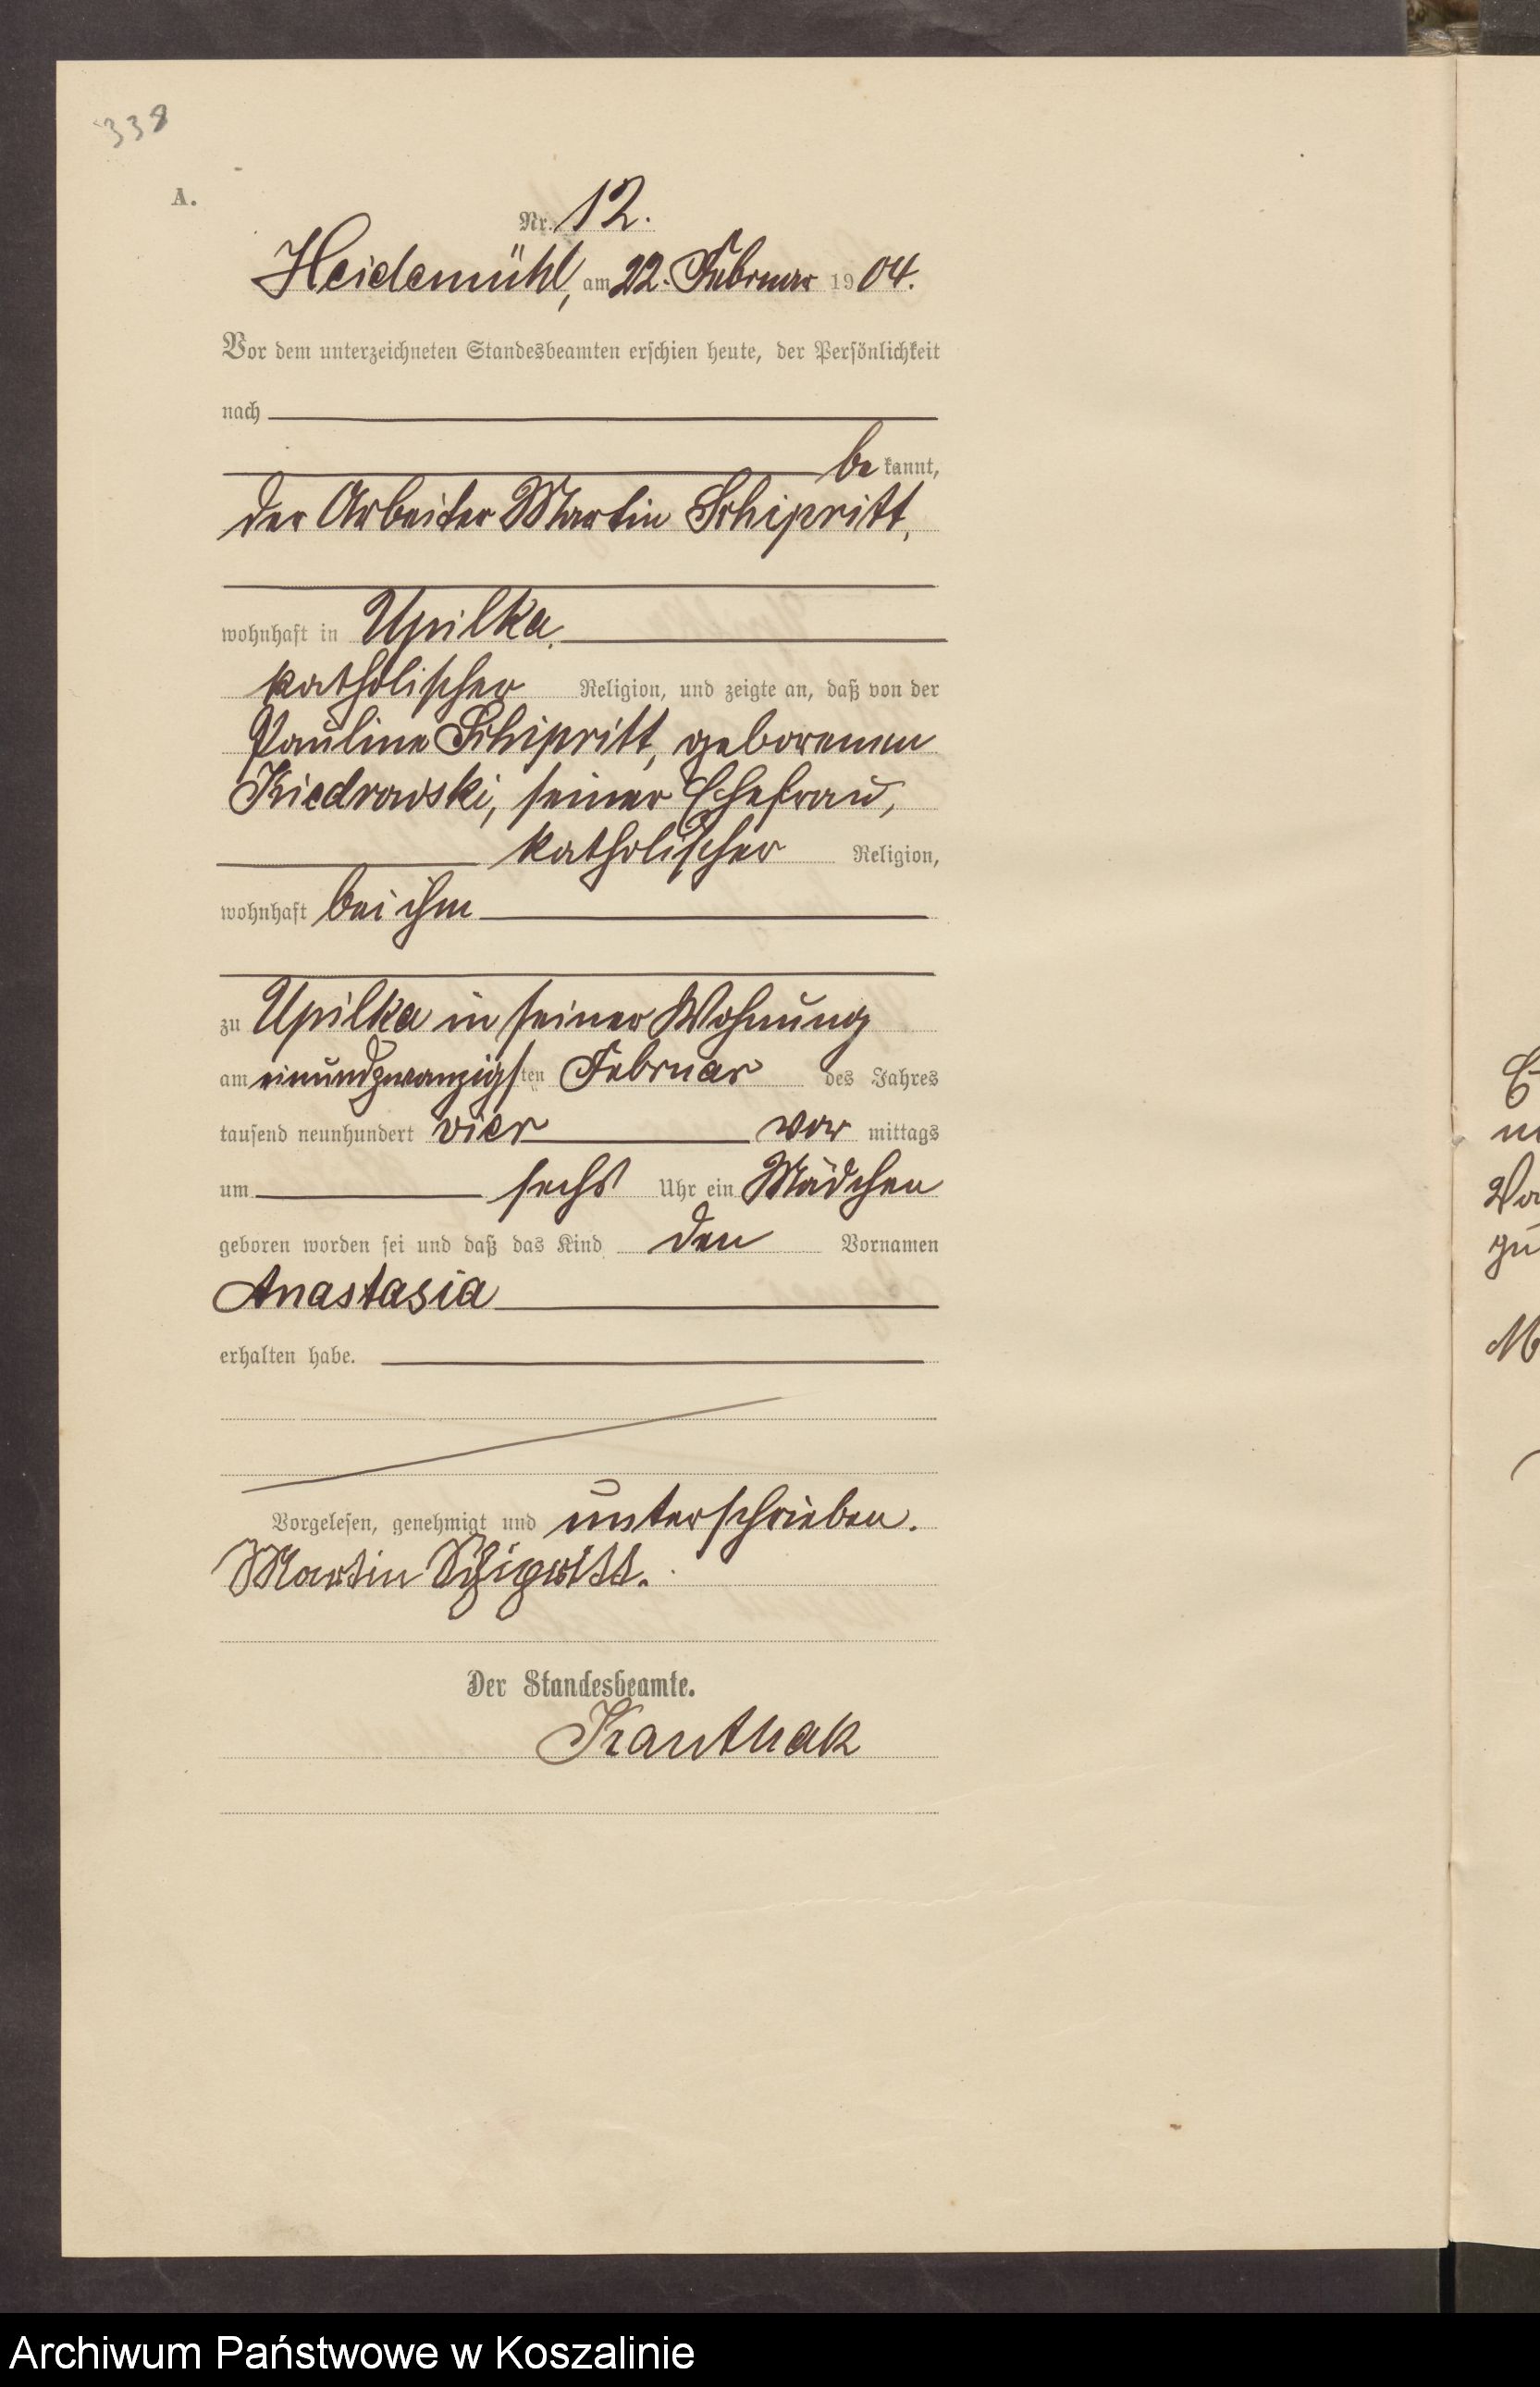 338
A.
Nr. 12.
Heidemühl, am 22. Februar 1904.
Vor dem unterzeichneten Standesbeamten erschien heute, der Persönlichkeit
nach
be kannt,
der Arbeiter Martin Schipritt,
wohnhaft in Upilka,
katholischer Religion, und zeigte an, daß von der
Pauline Schipritt, geborenen
Kiedrowski, seiner Ehefrau,
katholischer Religion,
wohnhaft bei ihm
zu Upilka in seiner Wohnung
am einundzwanzigsten Februar des Jahres
tausend neunhundert vier vor mittags
um sechs Uhr ein Mädchen
geboren worden sei und daß das Kind den Vornamen
Anastasia
erhalten habe.
Vorgelesen, genehmigt und unterschrieben.
Martin Schipritt.
Der Standesbeamte.
Kanthak
Archiwum Państwowe w Koszalinie